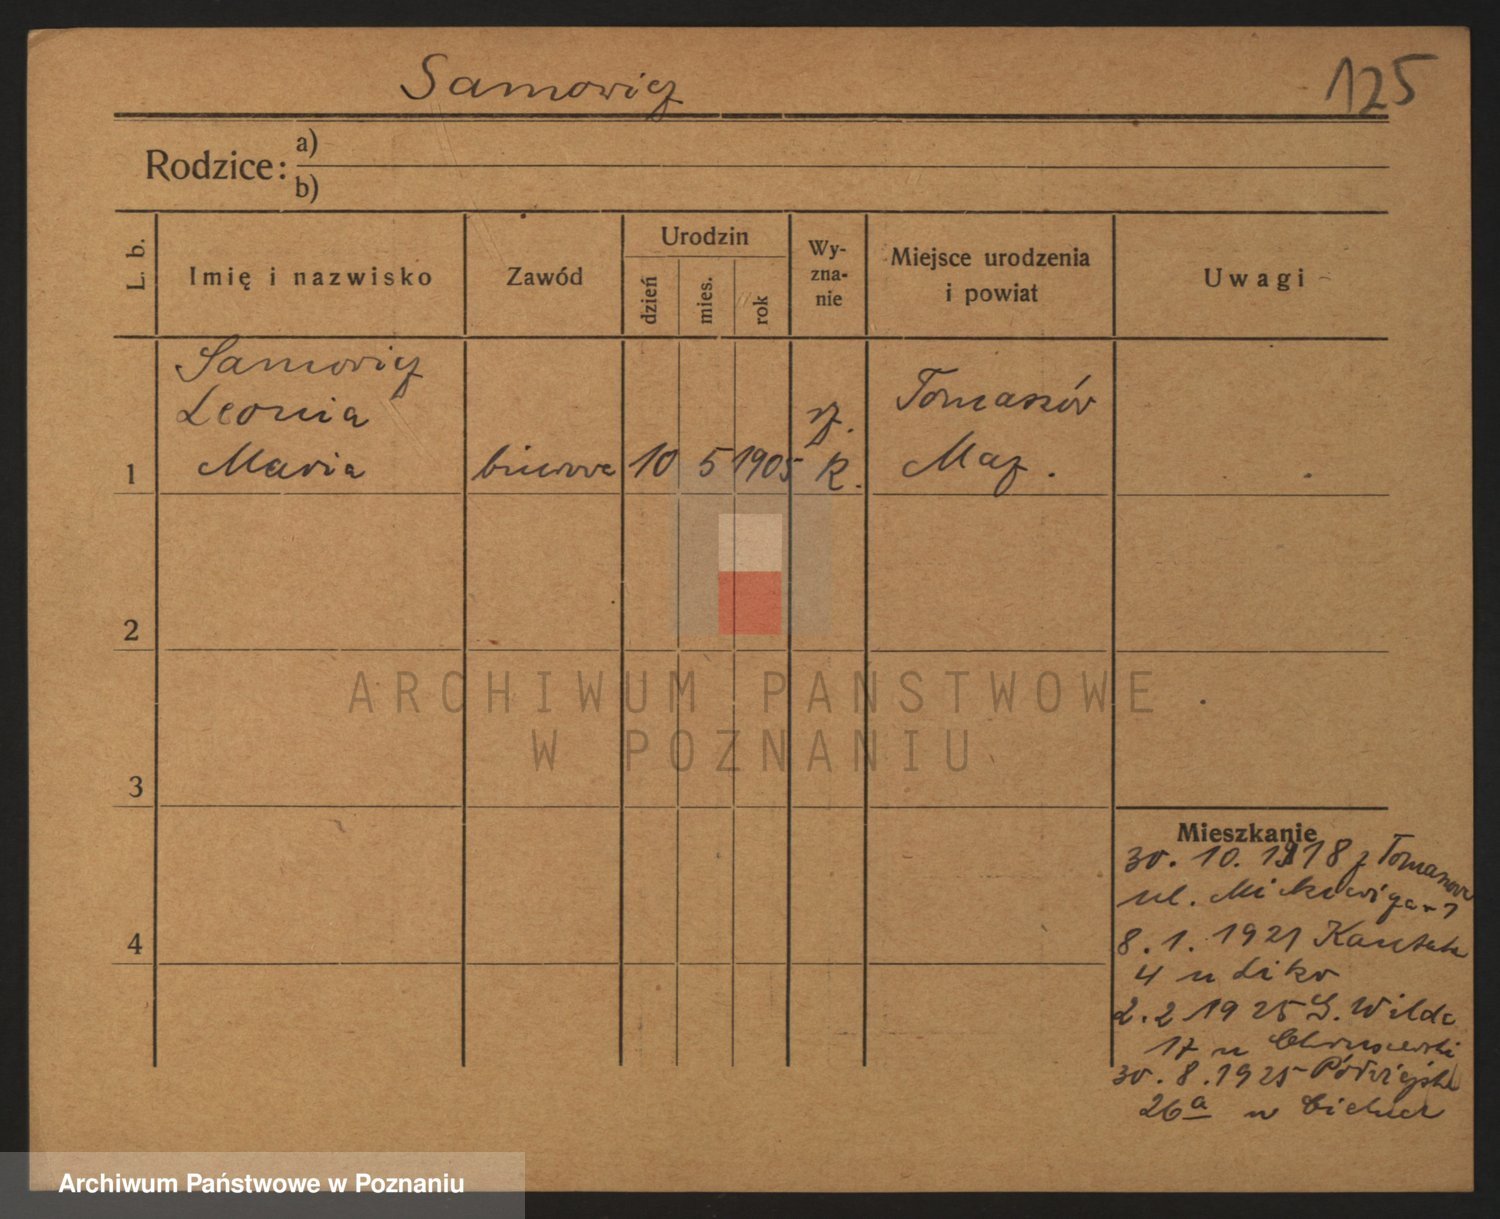 Samowicz
125
Rodzice:
a)
b)
L. b.
Imię i nazwisko
Zawód
Urodzin
dzień
mies.
rok
Wy-
zna-
nie
Miejsce urodzenia
i powiat
Uwagi
1
Samowicz
Leonia
Maria
biurowa
10
5
1905
rz.
k.
Tomaszów
Maz.
2
3
4
Mieszkanie
30. 10. 1918 z Tomaszowa
ul. Mickiewicza
8. 1. 1921 Kantaka
4 u
2. 2 1925 G. Wilda
17 u
30. 8. 1925 Półwiejska
26a u
ARCHIWUM PAŃSTWOWE
W POZNANIU
Archiwum Państwowe w Poznaniu